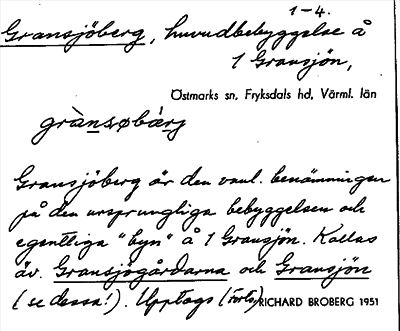 1-4.
Gransjöberg, huvudbebyggelse å
1 Gransjön,
Östmarks sn, Fryksdals hd, Värml. län
Gransjöberg är den vanl. benämningen
på den ursprungliga bebyggelsen och
egentliga "byn" å 1 Gransjön. Kallas
äv. Gransjögårdarna och Gransjön
(se dessa!). Upptogs (forts.) RICHARD BROBERG 1951